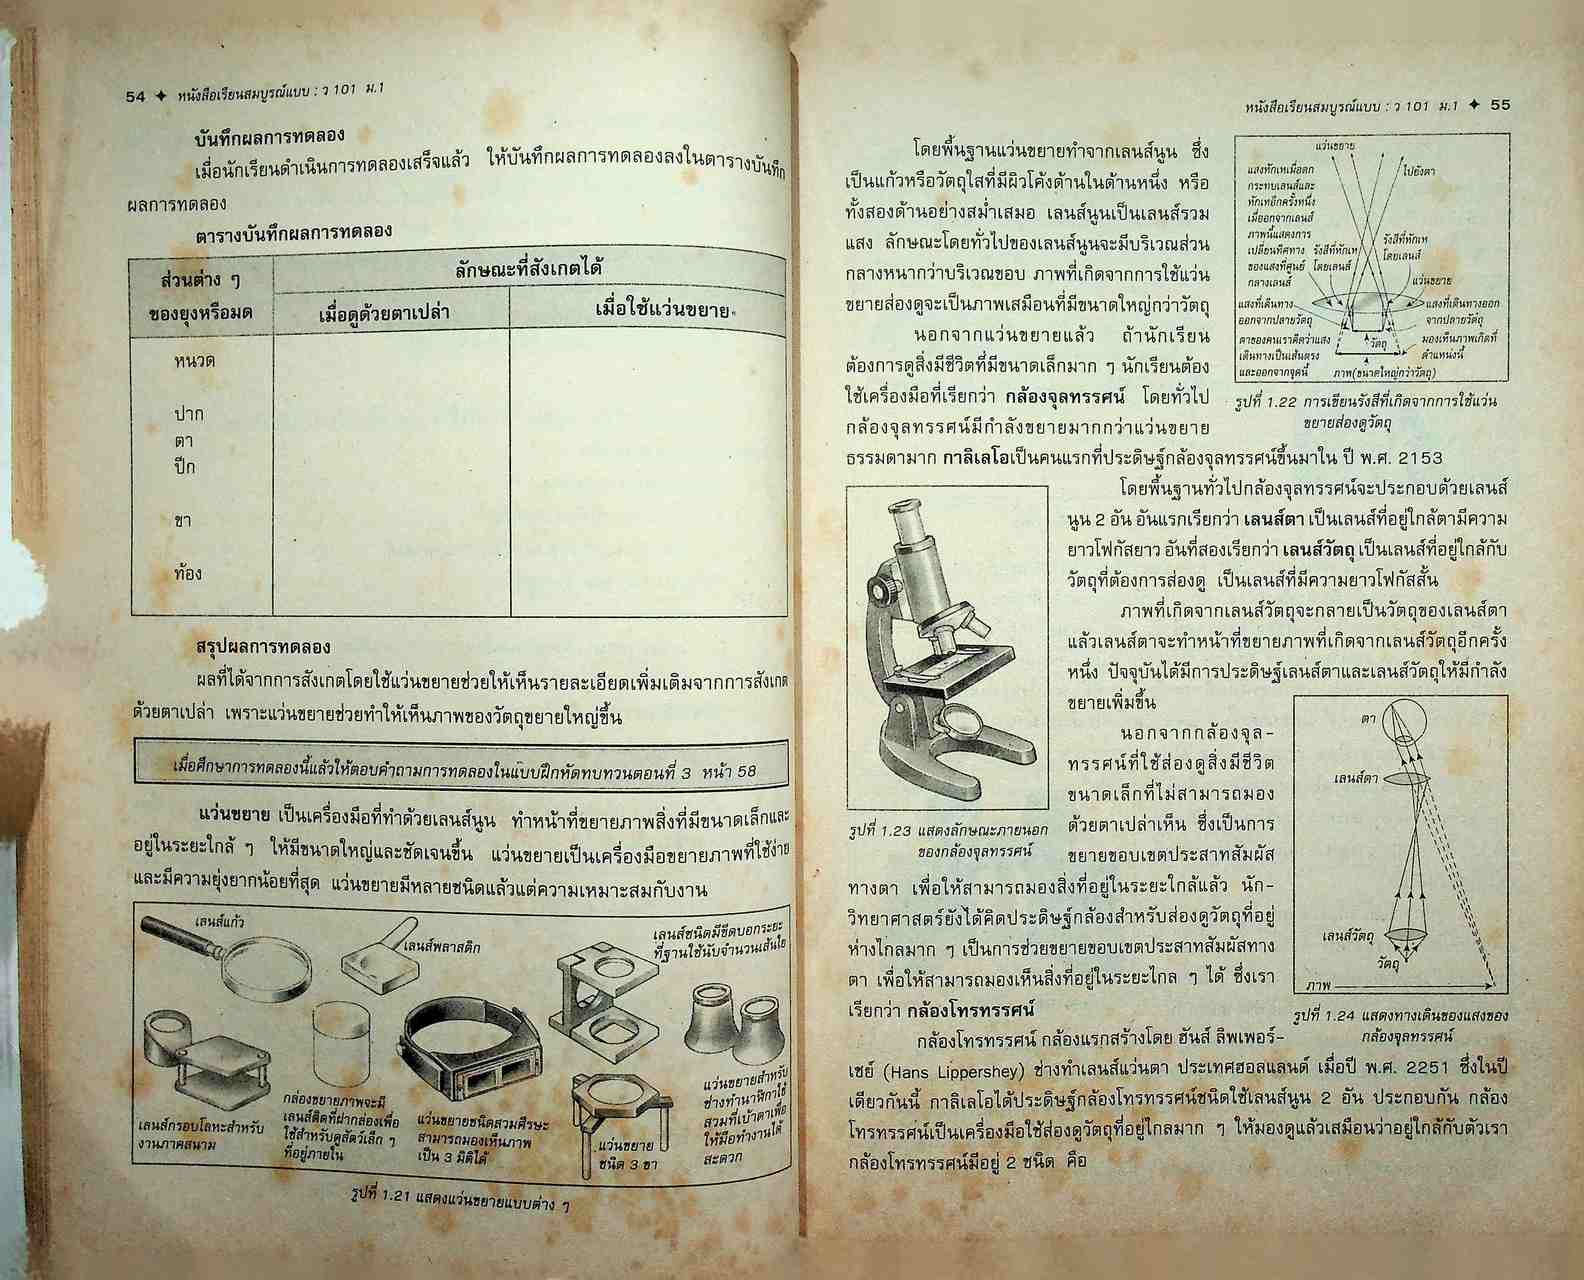 54 ✦ หนังสือเรียนสมบูรณ์แบบ : ว 101 ม.1
บันทึกผลการทดลอง
เมื่อนักเรียนดำเนินการทดลองเสร็จแล้ว ให้บันทึกผลการทดลองลงในตารางบันทึก
ผลการทดลอง
ตารางบันทึกผลการทดลอง
ส่วนต่าง ๆ
ของยุงหรือมด
ลักษณะที่สังเกตได้
เมื่อดูด้วยตาเปล่า
เมื่อใช้แว่นขยาย
หนวด
ปาก
ตา
ปีก
ขา
ท้อง
สรุปผลการทดลอง
ผลที่ได้จากการสังเกตโดยใช้แว่นขยายช่วยให้เห็นรายละเอียดเพิ่มเติมจากการสังเกต
ด้วยตาเปล่า เพราะแว่นขยายช่วยทำให้เห็นภาพของวัตถุขยายใหญ่ขึ้น
เมื่อศึกษาการทดลองนี้แล้วให้ตอบคำถามการทดลองในแบบฝึกหัดทบทวนตอนที่ 3 หน้า 58
แว่นขยาย เป็นเครื่องมือที่ทำด้วยเลนส์นูน ทำหน้าที่ขยายภาพสิ่งที่มีขนาดเล็กและ
อยู่ในระยะใกล้ ๆ ให้มีขนาดใหญ่และชัดเจนขึ้น แว่นขยายเป็นเครื่องมือขยายภาพที่ใช้ง่าย
และมีความยุ่งยากน้อยที่สุด แว่นขยายมีหลายชนิดแล้วแต่ความเหมาะสมกับงาน
เลนส์แก้ว
เลนส์พลาสติก
เลนส์ชนิดมีขีดบอกระยะ
ที่ฐานใช้นับจำนวนเส้นใย
เลนส์กรอบโลหะสำหรับ
งานภาคสนาม
กล่องขยายภาพจะมี
เลนส์ติดที่ฝากล่องเพื่อ
ใช้สำหรับดูสัตว์เล็ก ๆ
ที่อยู่ภายใน
แว่นขยายชนิดสวมศีรษะ
สามารถมองเห็นภาพ
เป็น 3 มิติได้
แว่นขยาย
ชนิด 3 ขา
แว่นขยายสำหรับ
ช่างทำนาฬิกาใช้
สวมที่เบ้าตาเพื่อ
ให้มือทำงานได้
สะดวก
รูปที่ 1.21 แสดงแว่นขยายแบบต่าง ๆ
หนังสือเรียนสมบูรณ์แบบ : ว 101 ม.1 ✦ 55
โดยพื้นฐานแว่นขยายทำจากเลนส์นูน ซึ่ง
เป็นแก้วหรือวัตถุใสที่มีผิวโค้งด้านในด้านหนึ่ง หรือ
ทั้งสองด้านอย่างสม่ำเสมอ เลนส์นูนเป็นเลนส์รวม
แสง ลักษณะโดยทั่วไปของเลนส์นูนจะมีบริเวณส่วน
กลางหนากว่าบริเวณขอบ ภาพที่เกิดจากการใช้แว่น
ขยายส่องดูจะเป็นภาพเสมือนที่มีขนาดใหญ่กว่าวัตถุ
นอกจากแว่นขยายแล้ว ถ้านักเรียน
ต้องการดูสิ่งมีชีวิตที่มีขนาดเล็กมาก ๆ นักเรียนต้อง
ใช้เครื่องมือที่เรียกว่า กล้องจุลทรรศน์ โดยทั่วไป
กล้องจุลทรรศน์มีกำลังขยายมากกว่าแว่นขยาย
ธรรมดามาก กาลิเลโอเป็นคนแรกที่ประดิษฐ์กล้องจุลทรรศน์ขึ้นมาใน ปี พ.ศ. 2153
แว่นขยาย
ไปยังตา
แสงหักเหเมื่อตก
กระทบเลนส์และ
หักเหอีกครั้งหนึ่ง
เมื่อออกจากเลนส์
ภาพนี้แสดงการ
เปลี่ยนทิศทาง
ของแสงที่ศูนย์
กลางเลนส์
รังสีที่หักเห
โดยเลนส์
รังสีที่หักเห
โดยเลนส์
แว่นขยาย
แสงที่เดินทาง
ออกจากปลายวัตถุ
แสงที่เดินทางออก
จากปลายวัตถุ
ตาของคนเราคิดว่าแสง
เดินทางเป็นเส้นตรง
และออกจากจุดนี้
วัตถุ
มองเห็นภาพเกิดที่
ตำแหน่งนี้
ภาพ(ขนาดใหญ่กว่าวัตถุ)
รูปที่ 1.22 การเขียนรังสีที่เกิดจากการใช้แว่น
ขยายส่องดูวัตถุ
โดยพื้นฐานทั่วไปกล้องจุลทรรศน์จะประกอบด้วยเลนส์
นูน 2 อัน อันแรกเรียกว่า เลนส์ตา เป็นเลนส์ที่อยู่ใกล้ตามีความ
ยาวโฟกัสยาว อันที่สองเรียกว่า เลนส์วัตถุ เป็นเลนส์ที่อยู่ใกล้กับ
วัตถุที่ต้องการส่องดู เป็นเลนส์ที่มีความยาวโฟกัสสั้น
ภาพที่เกิดจากเลนส์วัตถุจะกลายเป็นวัตถุของเลนส์ตา
แล้วเลนส์ตาจะทำหน้าที่ขยายภาพที่เกิดจากเลนส์วัตถุอีกครั้ง
หนึ่ง ปัจจุบันได้มีการประดิษฐ์เลนส์ตาและเลนส์วัตถุให้มีกำลัง
ขยายเพิ่มขึ้น
รูปที่ 1.23 แสดงลักษณะภายนอก
ของกล้องจุลทรรศน์
นอกจากกล้องจุล-
ทรรศน์ที่ใช้ส่องดูสิ่งมีชีวิต
ขนาดเล็กที่ไม่สามารถมอง
ด้วยตาเปล่าเห็น ซึ่งเป็นการ
ขยายขอบเขตประสาทสัมผัส
ทางตา เพื่อให้สามารถมองสิ่งที่อยู่ในระยะใกล้แล้ว นัก-
วิทยาศาสตร์ยังได้คิดประดิษฐ์กล้องสำหรับส่องดูวัตถุที่อยู่
ห่างไกลมาก ๆ เป็นการช่วยขยายขอบเขตประสาทสัมผัสทาง
ตา เพื่อให้สามารถมองเห็นสิ่งที่อยู่ในระยะไกล ๆ ได้ ซึ่งเรา
เรียกว่า กล้องโทรทรรศน์
ตา
เลนส์ตา
เลนส์วัตถุ
วัตถุ
ภาพ
รูปที่ 1.24 แสดงทางเดินของแสงของ
กล้องจุลทรรศน์
กล้องโทรทรรศน์ กล้องแรกสร้างโดย ฮันส์ ลิพเพอร์-
เชย์ (Hans Lippershey) ช่างทำเลนส์แว่นตา ประเทศฮอลแลนด์ เมื่อปี พ.ศ. 2251 ซึ่งในปี
เดียวกันนี้ กาลิเลโอได้ประดิษฐ์กล้องโทรทรรศน์ชนิดใช้เลนส์นูน 2 อัน ประกอบกัน กล้อง
โทรทรรศน์เป็นเครื่องมือใช้ส่องดูวัตถุที่อยู่ไกลมาก ๆ ให้มองดูแล้วเสมือนว่าอยู่ใกล้กับตัวเรา
กล้องโทรทรรศน์มีอยู่ 2 ชนิด คือ